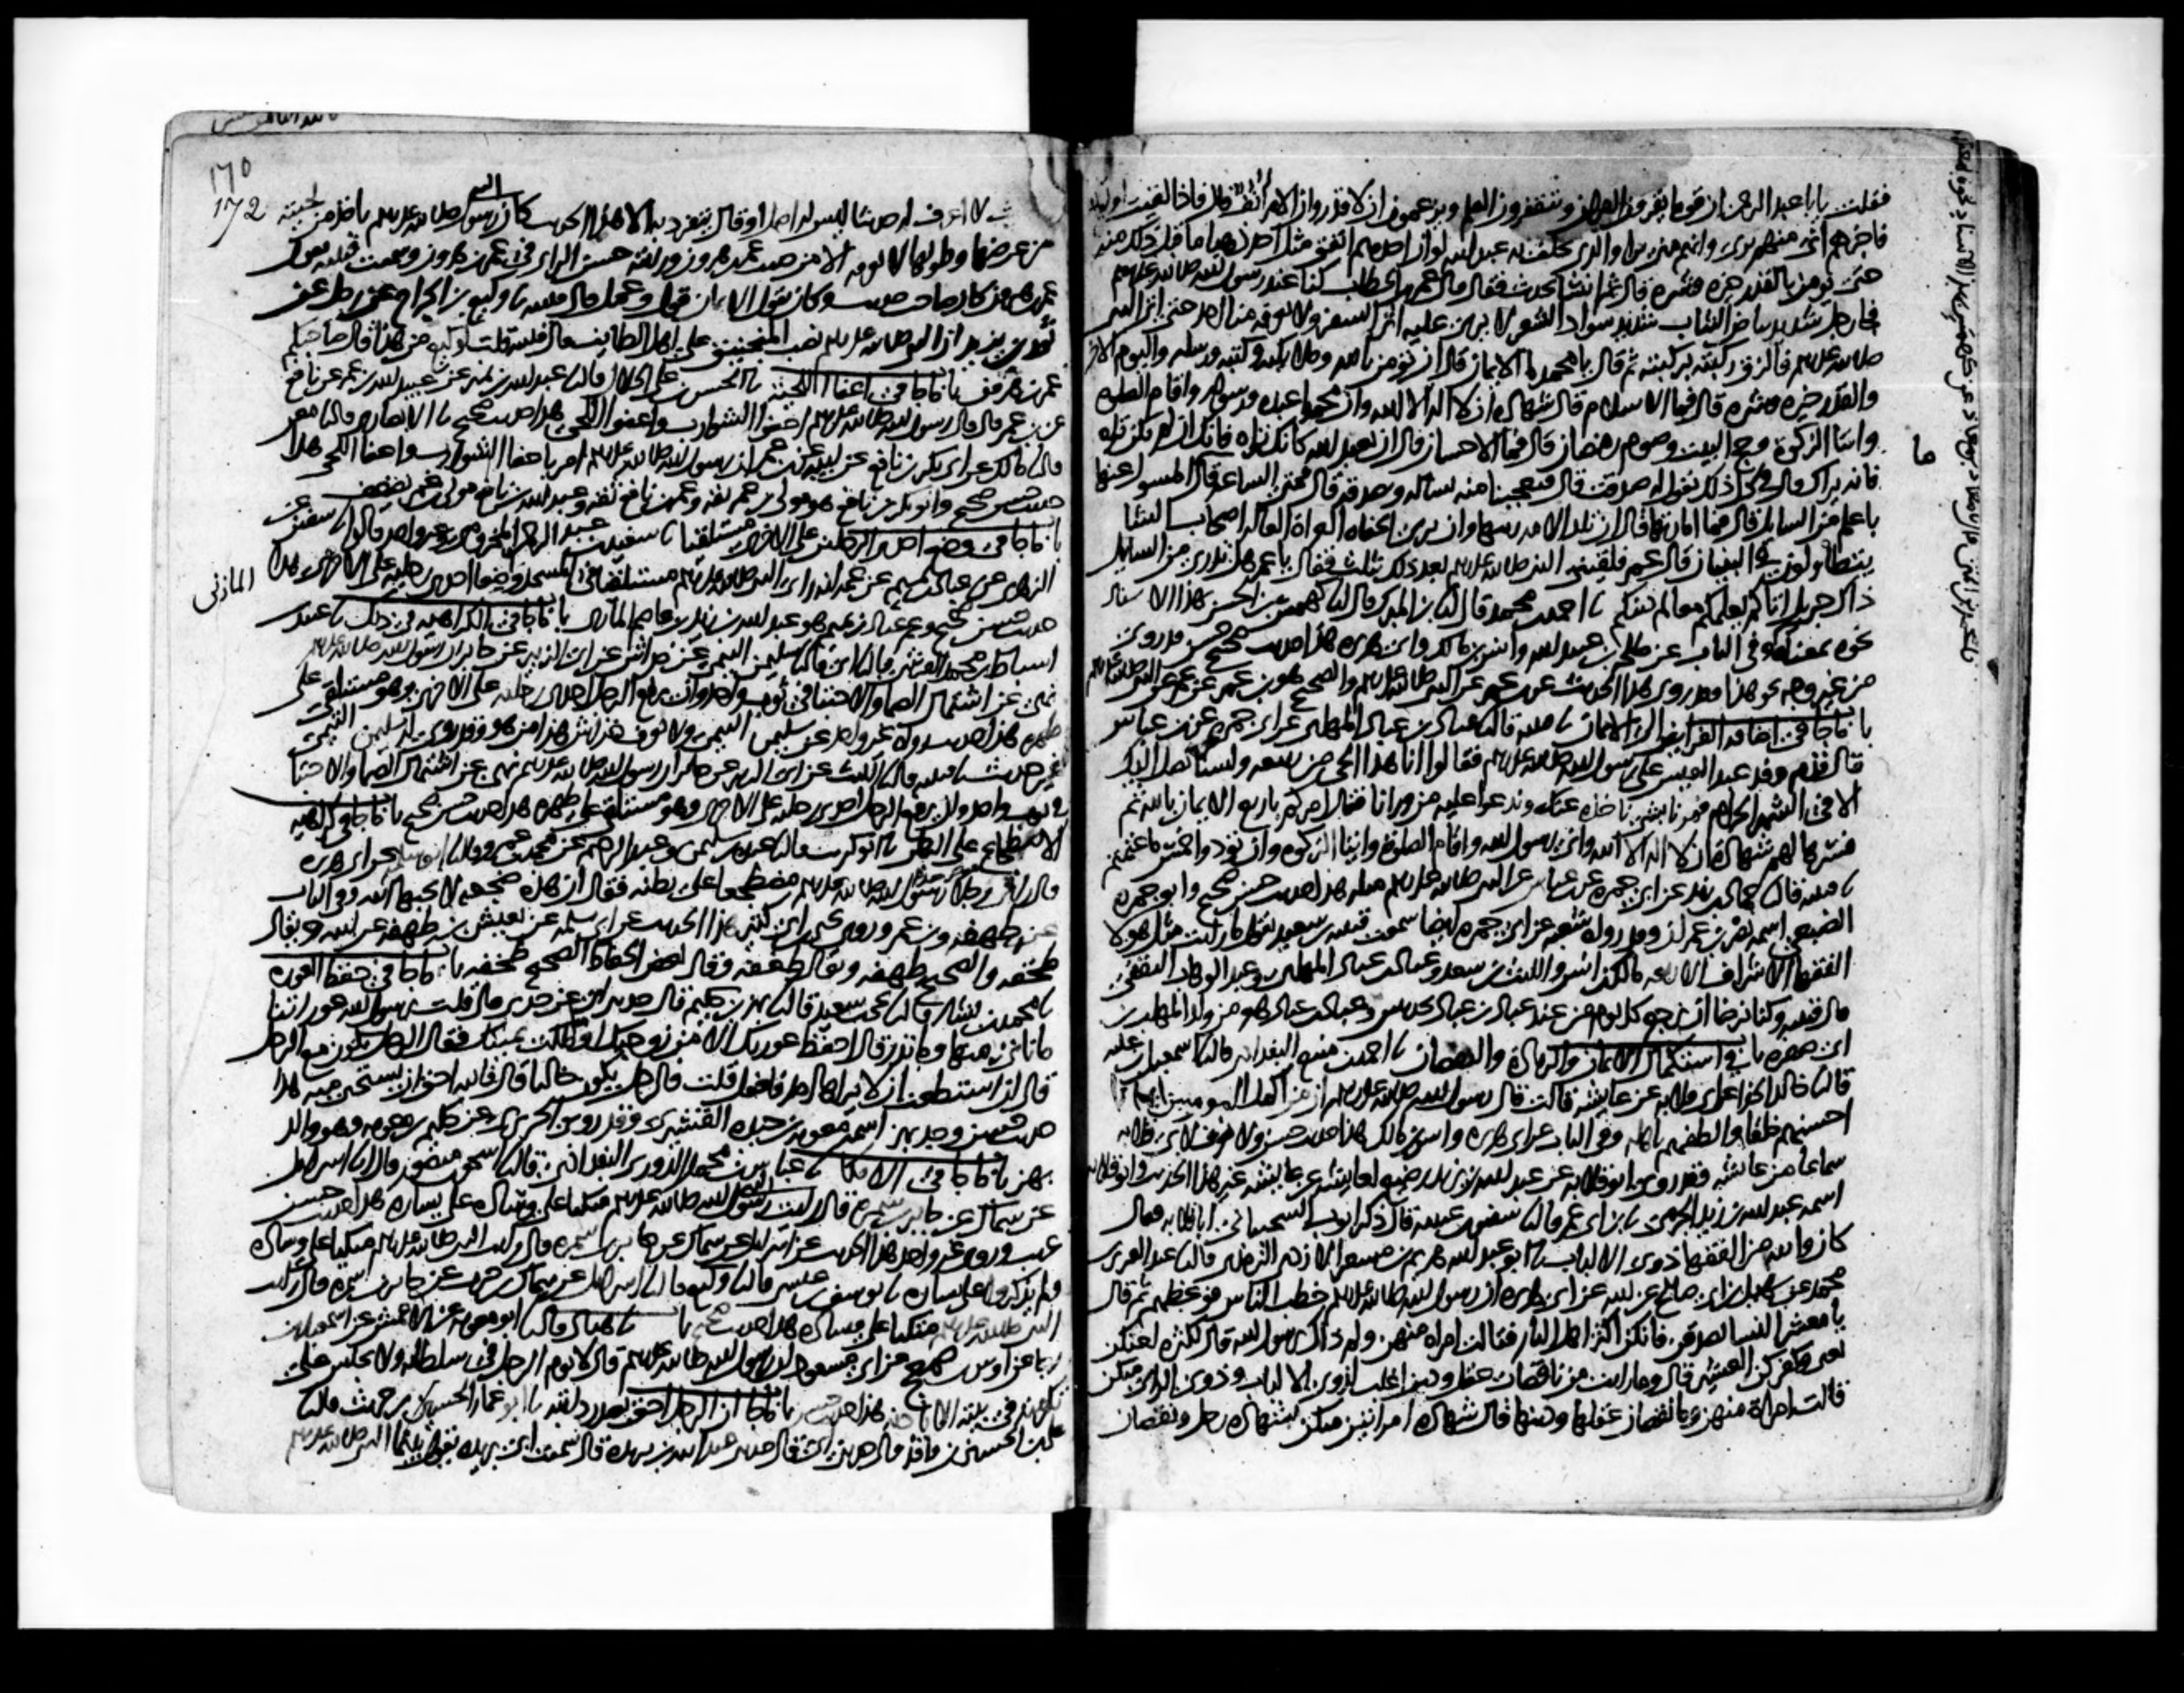 فقلت يا با عبد الرحمن ان قوما يقرون القران ويتقفرون العلم ويزعمون ان لا قدر وان الامر انف قال فاذا لقيت اولئك
فاخبرهم اني منهم بري وانهم مني برا والذي يحلف به عبد الله لو ان احدهم انفق مثل احد ذهبا ما قبل ذلك منه
حتى يومن بالقدر خيره وشره قال ثم انشا يحدث فقال قال عمر بن الخطاب كنا عند رسول الله صلى الله عليه وسلم
فجا رجل شديد بياض الثياب شديد سواد الشعر لا يرى عليه اثر السفر ولا يعرفه منا احد حتى اتى النبي
صلى الله عليه وسلم فالزق ركبته بركبته ثم قال يا محمد ما الايمان قال ان تومن بالله وملايكته وكتبه ورسله واليوم الاخر
والقدر خيره وشره قال فما الاسلام قال شهادة ان لا اله الا الله وان محمدا عبده ورسوله واقام الصلوة
وايتا الزكوة وحج البيت وصوم رمضان قال فما الاحسان قال ان تعبد الله كانك تراه فانك ان لم تكن تراه
فانه يراك قال في كل ذلك يقول له صدقت قال فتعجبنا منه يساله ويصدقه قال فمتى الساعة قال ما المسول عنها
باعلم من السايل قال فما امارتها قال ان تلد الامة ربتها وان ترى الحفاة العراة العالة اصحاب الشا
يتطاولون في البنيان قال عمر فلقيني النبي صلى الله عليه وسلم بعد ذلك بثلث فقال يا عمر هل تدري من السايل
ذاك جبريل اتاكم يعلمكم معالم دينكم نا احمد بن محمد قال نا ابن المبرك قال نا كهمس بن الحسن بهذا الاسناد
نحوه بمعناه وفي الباب عن طلحة بن عبيد الله وانس بن مالك وابي هريرة هذا حديث صحيح حسن قد روي
من غير وجه نحو هذا وقد روي هذا الحديث عن ابن عمر عن النبي صلى الله عليه وسلم والصحيح هو ابن عمر عن عمر عن النبي صلى الله عليه وسلم
باب ما جا في اضافة الفرايض الى الايمان نا قتيبة قال نا عباد بن عباد المهلبي عن ابي جمرة عن ابن عباس
قال قدم وفد عبد القيس على رسول الله صلى الله عليه وسلم فقالوا انا هذا الحي من ربيعة ولسنا نصل اليك
الا في الشهر الحرام فمرنا بشي ناخذه عنك وندعوا اليه من ورانا فقال امركم باربع الايمان بالله ثم
فسرها لهم شهادة ان لا اله الا الله واني رسول الله واقام الصلوة وايتا الزكوة وان تودوا خمس ما غنمتم
نا قتيبة قال نا حماد بن زيد عن ابي جمرة عن ابن عباس عن النبي صلى الله عليه وسلم مثله هذا حديث حسن صحيح وابو جمرة
الضبعي اسمه نصر بن عمران وقد رواه شعبة عن ابي جمرة ايضا سمعت قتيبة بن سعيد يقول ما رايت مثل هولا
الفقها الاشراف الاربعة مالك بن انس والليث بن سعد وعباد بن عباد المهلبي وعبد الوهاب الثقفي
قال قتيبة وكنا نرضا ان نرجع كل يوم من عند عباد بن عباد بحديثين وعباد بن عباد هو من ولد المهلب بن
ابي صفرة باب في استكمال الايمان والزيادة والنقصان نا احمد بن منيع البغدادي قال نا اسمعيل بن علية
قال نا خالد الحذا عن ابي قلابة عن عايشة قالت قال رسول الله صلى الله عليه وسلم ان من اكمل المومنين ايمانا
احسنهم خلقا والطفهم باهله وفي الباب عن ابي هريرة وانس بن مالك هذا حديث حسن ولا نعرف لابي قلابة
سماعا من عايشة وقد روى ابو قلابة عن عبد الله بن يزيد رضيع لعايشة عن عايشة غير هذا الحديث وابو قلابة
اسمه عبد الله بن زيد الجرمي نا ابن ابي عمر قال نا سفين بن عيينة قال ذكر ايوب السختياني ابا قلابة فقال
كان والله من الفقها ذوي الالباب نا ابو عبد الله هريم بن مسعر الازدي الترمذي قال نا عبد العزيز بن
محمد عن سهيل بن ابي صالح عن ابيه عن ابي هريرة ان رسول الله صلى الله عليه وسلم خطب الناس فوعظهم ثم قال
يا معشر النسا تصدقن فانكن اكثر اهل النار فقالت امراة منهن ولم ذاك يرسول الله قال لكثرة لعنكن
يعني وكفركن العشير قال وما رايت من ناقصات عقل ودين اغلب لذوي الالباب وذوي الراي منكن
قالت امراة منهن وما نقصان عقلها ودينها قال شهادة امراتين منكن بشهادة رجل ونقصان
ما
170
172
لا اعرف له حديثا ليس له اصل او قال يتفرد به الا هذا الحديث كان رسول الله صلى الله عليه وسلم ياخذ من لحيته
من عرضها وطولها لا نعرفه الا من حديث عمر بن هرون ورايته حسن الراي في عمر بن هرون وسمعت قتيبة يقول
عمر بن هرون كان صاحب حديث وكان يقول الايمان قول وعمل قال قتيبة نا وكيع بن الجراح عن رجل عن
ثور بن يزيد ان النبي صلى الله عليه وسلم نصب المنجنيق على اهل الطايف قال قتيبة قلت لوكيع من هذا قال صاحبكم
عمر بن هرون باب ما جا في اعفا اللحية نا الحسن بن علي الخلال قال نا عبد الله بن نمير عن عبيد الله بن عمر عن نافع
عن ابن عمر قال قال رسول الله صلى الله عليه وسلم احفوا الشوارب واعفوا اللحى هذا حديث صحيح نا الانصاري قال نا معن
قال نا مالك عن ابي بكر بن نافع عن ابيه عن ابن عمر ان رسول الله صلى الله عليه وسلم امر باحفا الشوارب واعفا اللحى هذا
حديث حسن صحيح وابو بكر بن نافع هو مولى ابن عمر ثقة وعمر بن نافع ثقة وعبد الله بن نافع مولى ابن عمر يضعف
باب ما جا في وضع احدى الرجلين على الاخرى مستلقيا نا سعيد بن عبد الرحمن المخزومي وغير واحد قالوا نا سفين عن
الزهري عن عباد بن تميم عن عمه انه راى النبي صلى الله عليه وسلم مستلقيا في المسجد واضعا احدى رجليه على الاخرى هذا
حديث حسن صحيح وعم عباد بن تميم هو عبد الله بن زيد بن عاصم المازني باب ما جا في الكراهية في ذلك نا عبيد بن
المازني
اسباط بن محمد القرشي قال نا ابي قال نا سليمن التيمي عن خداش عن ابي الزبير عن جابر ان رسول الله صلى الله عليه وسلم
نهى عن اشتمال الصما والاحتبا في ثوب واحد وان يرفع الرجل احدى رجليه على الاخرى وهو مستلقي على
ظهره هذا حديث رواه غير واحد عن سليمن التيمي ولا نعرف خداش هذا من هو وقد روى له سليمن التيمي
غير حديث نا قتيبة قال نا الليث عن ابي الزبير عن جابر ان رسول الله صلى الله عليه وسلم نهى عن اشتمال الصما والاحتبا
في ثوب واحد وان يرفع الرجل احدى رجليه على الاخرى وهو مستلق على ظهره هذا حديث حسن صحيح باب ما جا في كراهية
الاضطجاع على البطن نا ابو كريب قال نا عبدة بن سليمن وعبد الرحيم عن محمد بن عمرو قال نا ابو سلمة عن ابي هريرة
قال راى رسول الله صلى الله عليه وسلم رجلا مضطجعا على بطنه فقال ان هذه ضجعة لا يحبها الله وفي الباب
عن طهفة وابن عمر وروى يحيى بن ابي كثير هذا الحديث عن ابي سلمة عن يعيش بن طهفة عن ابيه ويقال
طخفة والصحيح طهفة ويقال طغفة وقال بعض الحفاظ الصحيح طخفة باب ما جا في حفظ العورة
نا محمد بن بشار قال نا يحيى بن سعيد قال نا بهز بن حكيم قال حدثني ابي عن جدي قال قلت يرسول الله عوراتنا
ما ناتي منها وما نذر قال احفظ عورتك الا من زوجتك او ما ملكت يمينك فقال الرجل يكون مع الرجل
قال ان استطعت ان لا يراها احد فافعل قلت فالرجل يكون خاليا قال فالله احق ان يستحيى منه هذا
حديث حسن وجد بهز اسمه معوية بن حيدة القشيري وقد روى الجريري عن حكيم بن معوية وهو والد
بهز باب ما جا في الاتكا نا عباس بن محمد الدوري البغدادي قال نا اسحق بن منصور قال انا اسرايل
عن سماك عن جابر بن سمرة قال رايت رسول الله صلى الله عليه وسلم متكيا على وسادة على يساره هذا حديث حسن
غريب وروى غير واحد هذا الحديث عن اسرايل عن سماك عن جابر بن سمرة قال رايت النبي صلى الله عليه وسلم متكيا على وسادة
ولم يذكروا على يساره نا يوسف بن عيسى قال نا وكيع قال نا اسرايل عن سماك بن حرب عن جابر بن سمرة قال رايت
النبي صلى الله عليه وسلم متكيا على وسادة هذا حديث صحيح باب نا هناد قال نا ابو معوية عن الاعمش عن اسمعيل بن
رجا عن اوس بن ضمعج عن ابي مسعود ان رسول الله صلى الله عليه وسلم قال لا يوم الرجل في سلطانه ولا يجلس على
تكرمته في بيته الا باذنه هذا حديث حسن باب ما جا ان الرجل احق بصدر دابته نا ابو عمار الحسين بن حريث قال نا
علي بن الحسين بن واقد قال حدثني ابي قال حدثني عبد الله بن بريدة قال سمعت ابي بريدة يقول بينما النبي صلى الله عليه وسلم